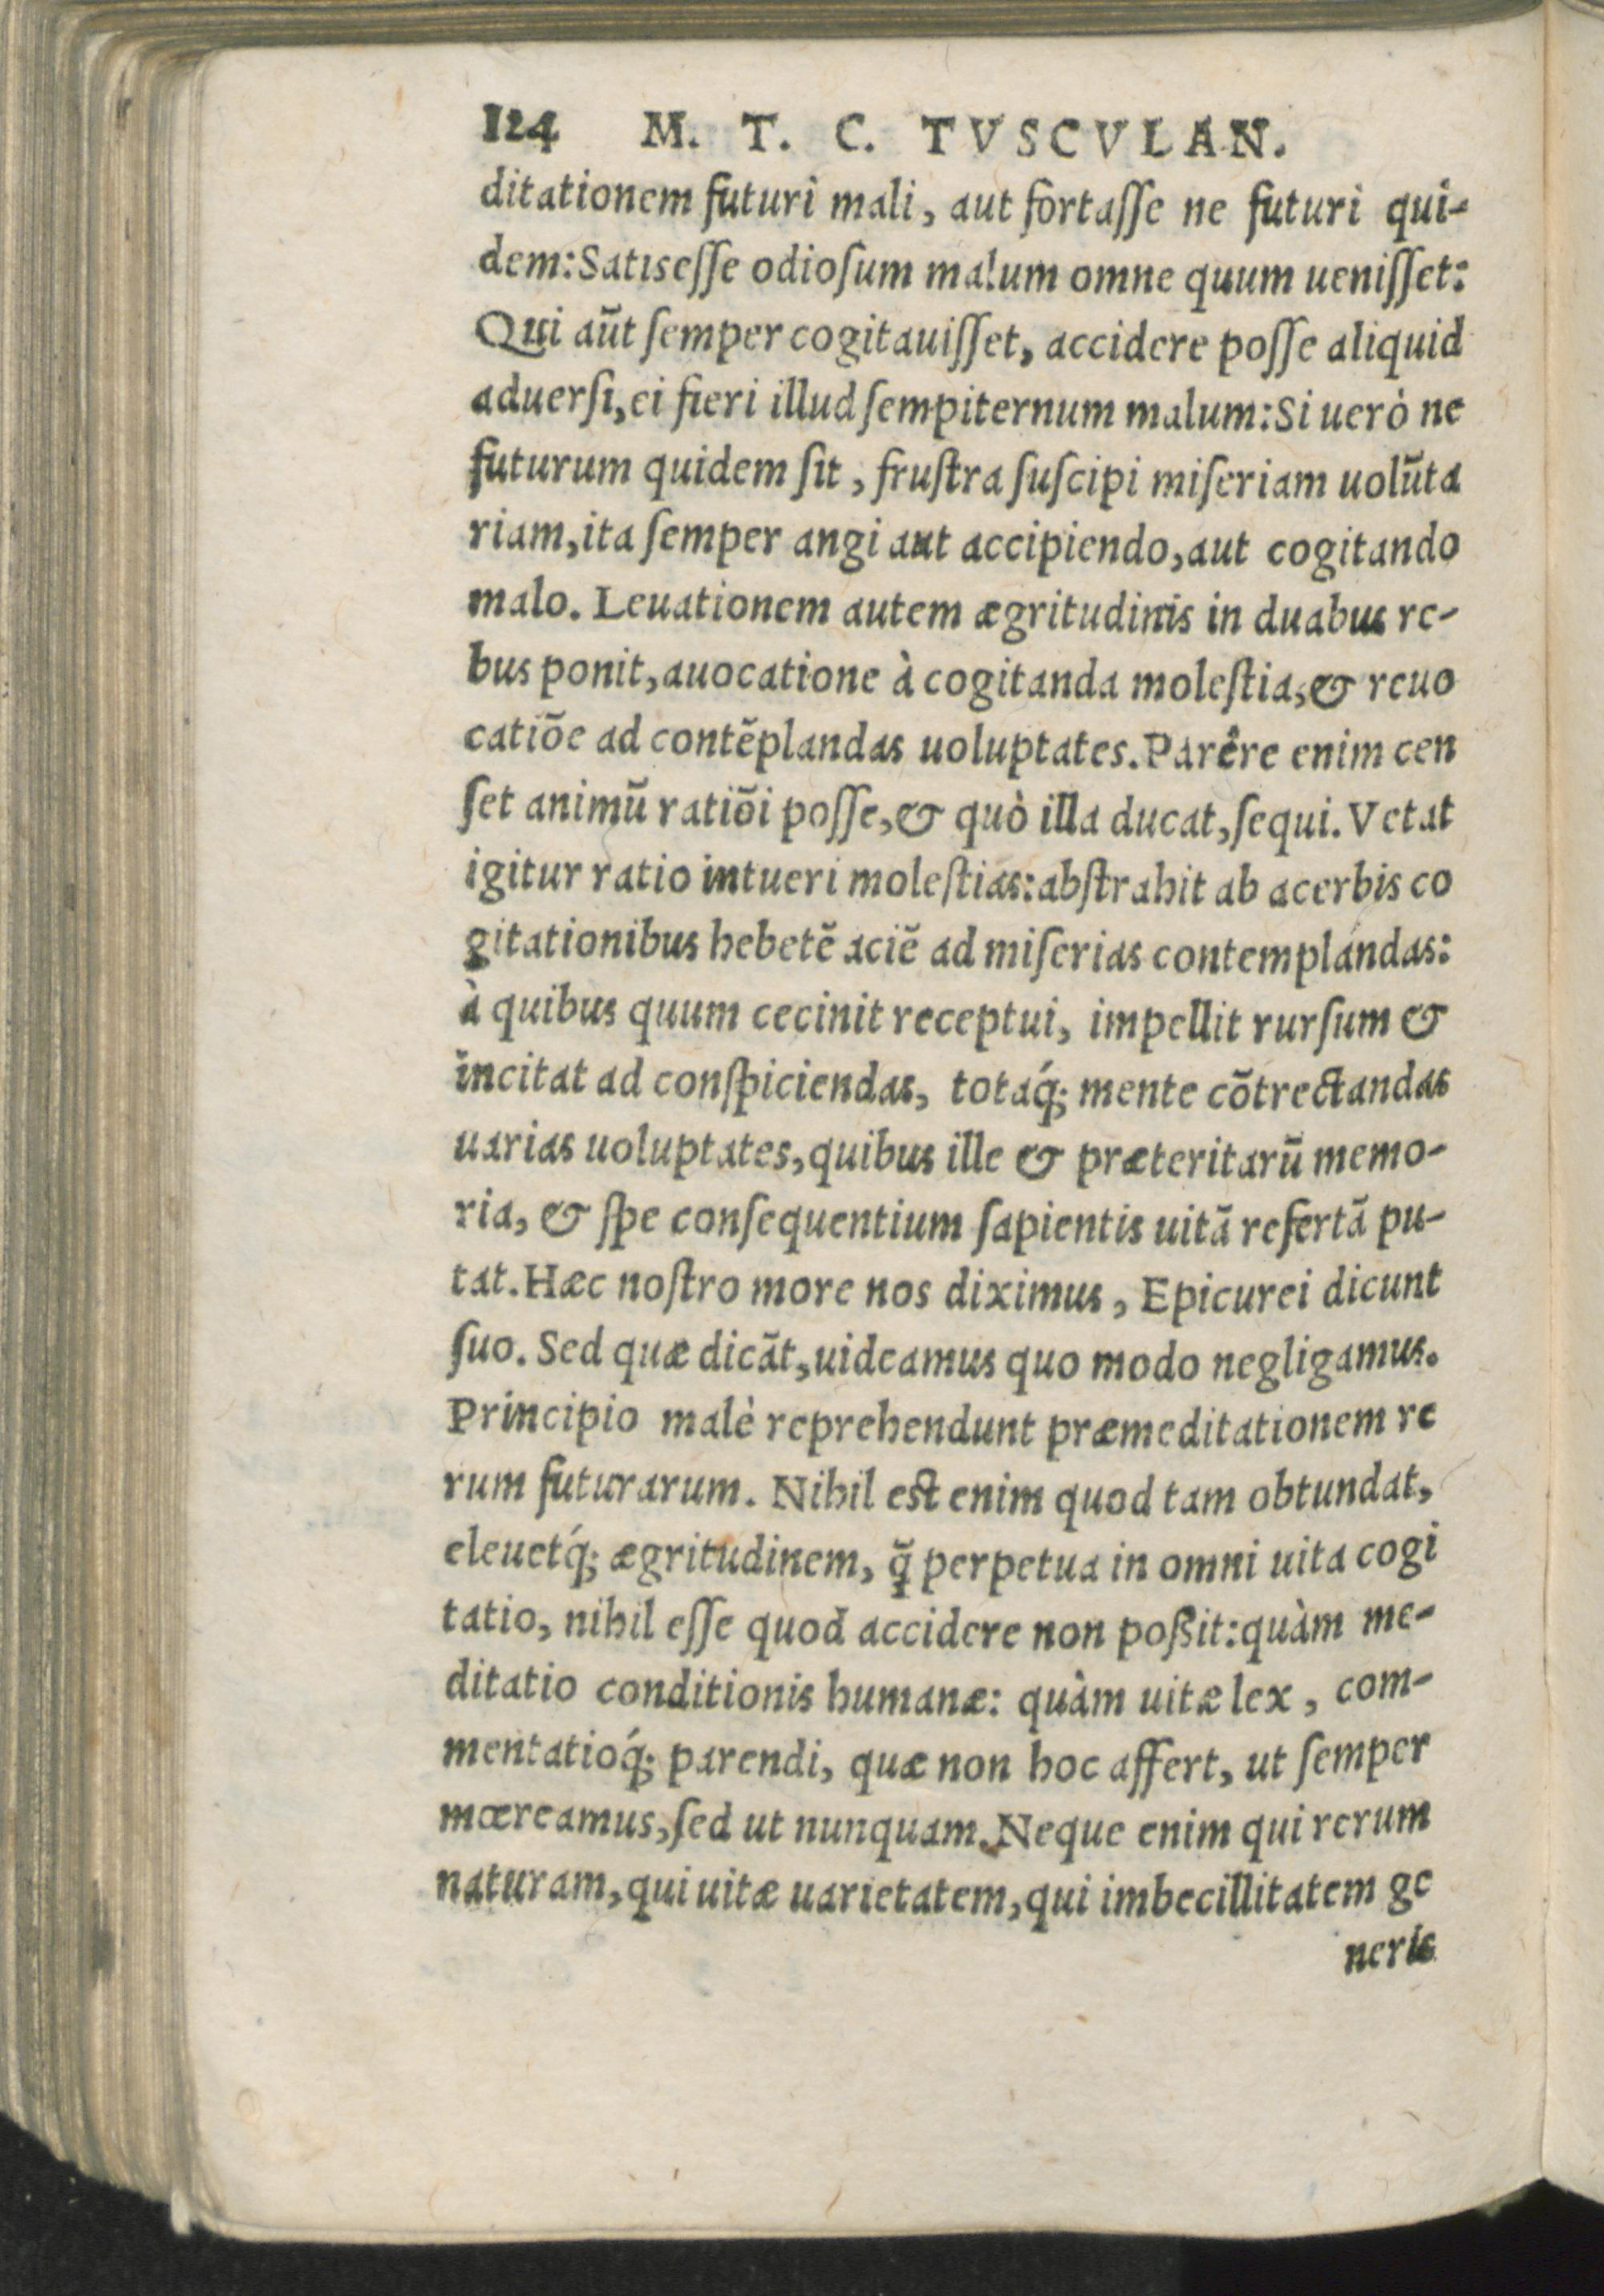 124 M. T. C. TVSCVLAN.
ditationem futuri mali, aut fortaſſe ne futuri qui-
dem: Satis eſſe odioſum malum omne quum ueniſſet:
Qui aūt ſemper cogitauiſſet, accidere poſſe aliquid
aduerſi, ei fieri illud ſempiternum malum: Si uerò ne
futurum quidem ſit, fruſtra ſuſcipi miſeriam uolūta
riam, ita ſemper angi aut accipiendo, aut cogitando
malo. Leuationem autem ægritudinis in duabus re-
bus ponit, auocatione à cogitanda moleſtia, & reuo
catiōe ad contēplandas uoluptates. Parêre enim cen
ſet animū ratiōi poſſe, & quò illa ducat, ſequi. Vetat
igitur ratio intueri moleſtias: abſtrahit ab acerbis co
gitationibus hebetē aciē ad miſerias contemplandas:
à quibus quum cecinit receptui, impellit rurſum &
incitat ad conſpiciendas, totaq́; mente cōtrectandas
uarias uoluptates, quibus ille & præteritarū memo-
ria, & ſpe conſequentium ſapientis uitā refertā pu-
tat. Hæc noſtro more nos diximus, Epicurei dicunt
ſuo. Sed quæ dicāt, uideamus quo modo negligamus.
Principio malè reprehendunt præmeditationem re
rum futurarum. Nihil eſt enim quod tam obtundat,
eleuetq́; ægritudinem, q̃ perpetua in omni uita cogi
tatio, nihil eſſe quod accidere non poßit: quàm me-
ditatio conditionis humanæ: quàm uitæ lex, com-
mentatioq́; parendi, quæ non hoc affert, ut ſemper
mœreamus, ſed ut nunquam. Neque enim qui rerum
naturam, qui uitæ uarietatem, qui imbecillitatem ge
neris